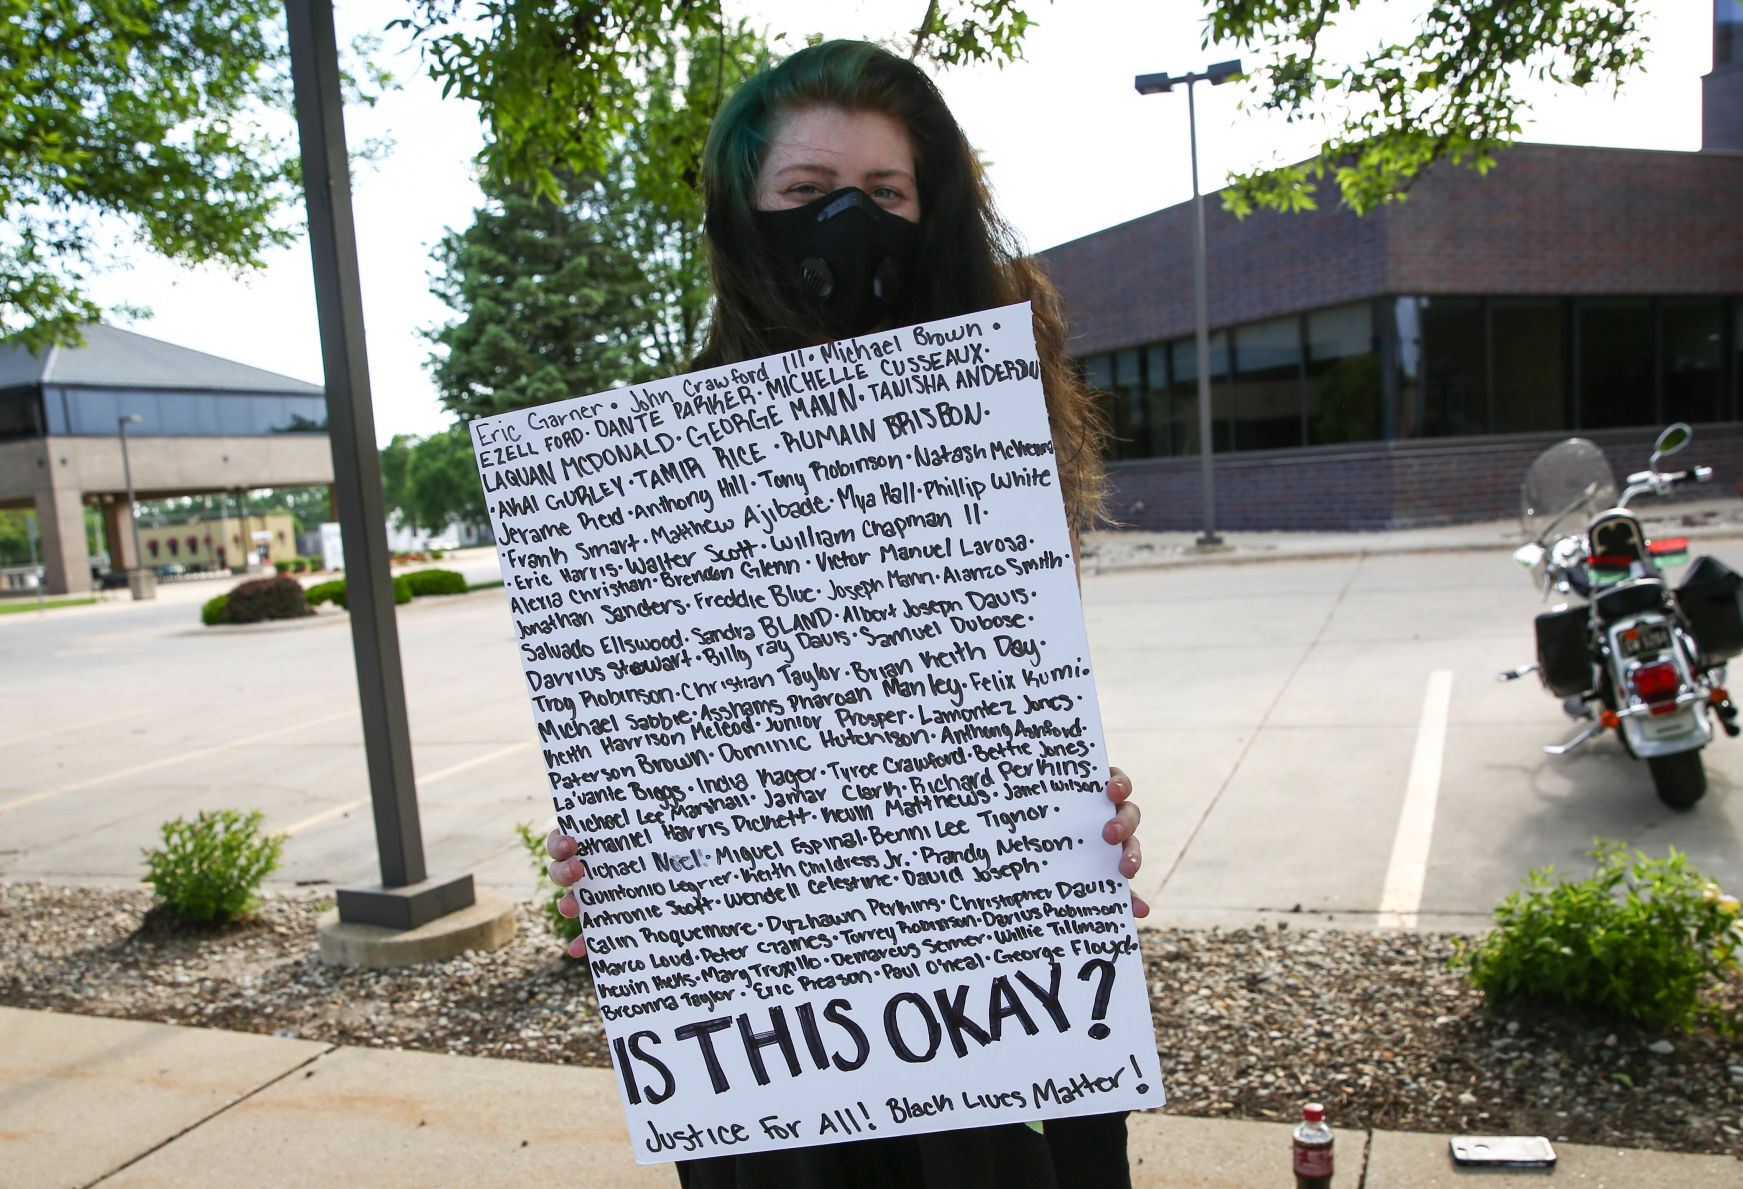 Eric Garner • John Crawford III • Michael Brown •
EZELL FORD • DANTE PARKER • MICHELLE CUSSEAUX •
LAQUAN MCDONALD • GEORGE MANN • TANISHA ANDERSON
• AKAI GURLEY • TAMIR RICE • RUMAIN BRISBON •
Jerame Reid • Anthony Hill • Tony Robinson • Natash McKenna
• Frank Smart • Matthew Ajibade • Mya Hall • Phillip White
• Eric Harris • Walter Scott • William Chapman II •
Alexia Christian • Brendon Glenn • Victor Manuel Larosa •
Jonathan Sanders • Freddie Blue • Joseph Mann • Alanzo Smith •
Salvado Ellswood • Sandra BLAND • Albert Joseph Davis •
Darrius Stewart • Billy ray Davis • Samuel Dubose •
Troy Robinson • Christian Taylor • Brian Keith Day •
Michael Sabbie • Asshams Pharoah Manley • Felix Kumi •
Keith Harrison McLeod • Junior Prosper • Lamontez Jones •
Paterson Brown • Dominic Hutchison • Anthony Ashford •
La'vante Biggs • India Kager • Tyree Crawford • Bettie Jones •
Michael Lee Marshall • Jamar Clark • Richard Perkins •
athaniel Harris Pickett • Kevin Matthews • Janet Wilson
Michael Noel • Miguel Espinal • Benni Lee Tignor •
Quintonio Legrier • Keith Childress Jr. • Randy Nelson •
Antronie Scott • Wendell Celestine • David Joseph •
Calin Roquemore • Dyzhawn Perkins • Christopher Davis •
Marco Loud • Peter Gaines • Torrey Robinson • Darius Robinson •
Kevin Hicks • Mary Truxillo • Demarcus Semer • Willie Tillman •
Breonna Taylor • Eric Reason • Paul O'neal • George Floyd •
IS THIS OKAY?
Justice For All! Black Lives Matter!